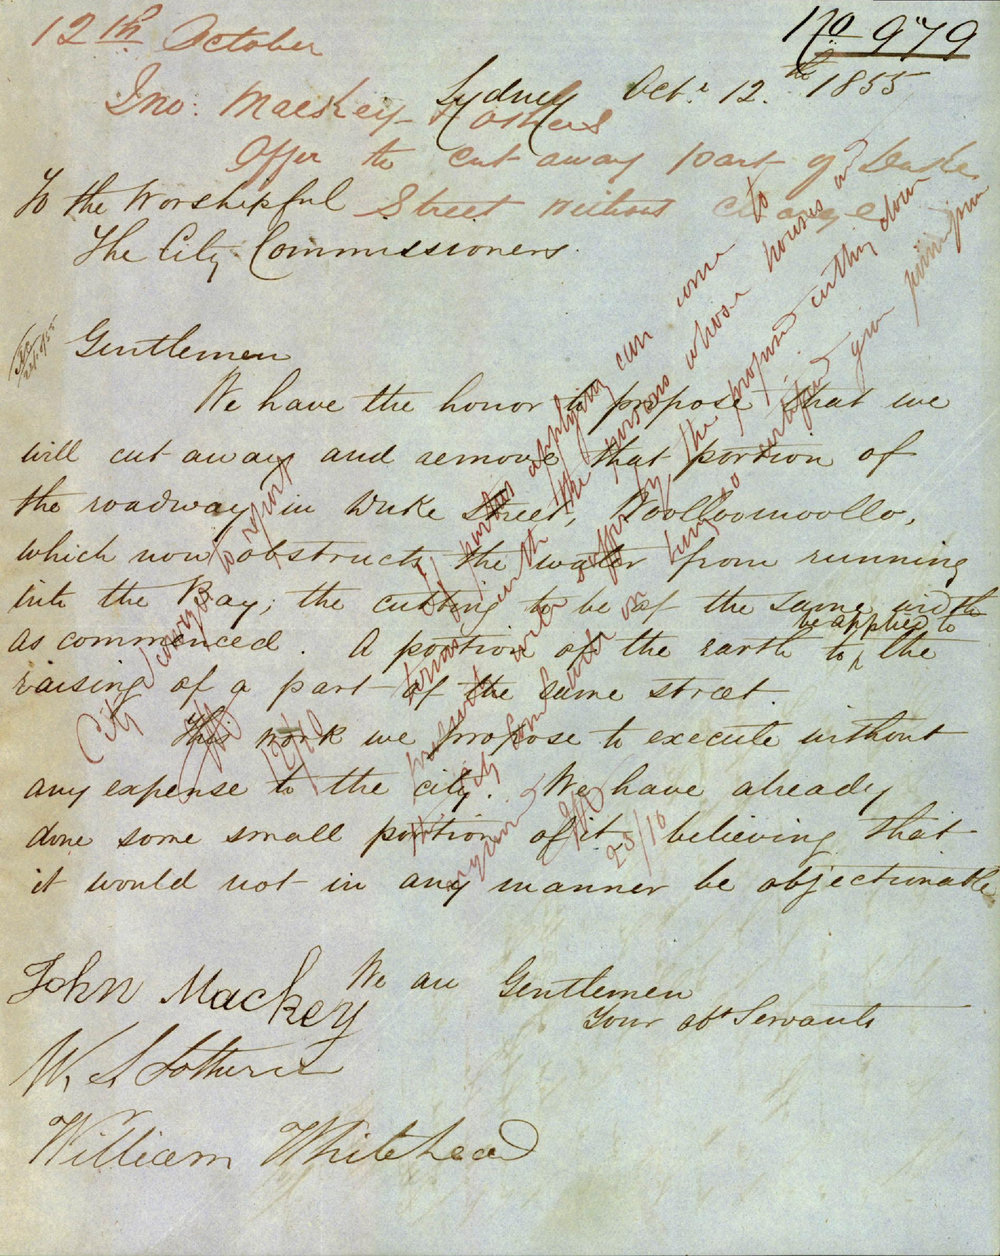 No 979
12th October
Jno. Mackey & others
Offer to cut away part of Duke
Street without charge
Sydney Octr. 12th 1855
To the Worshipful
The City Commissioners.
Gentlemen
We have the honor to propose that we
will cut away and remove that portion of
the roadway in Duke Street, Woolloomoollo,
which now obstructs the water from running
into the Bay; the cutting to be of the same width
as commenced. A portion of the earth to be applied to the
raising of a part of the same street.
This work we propose to execute without
any expense to the city. We have already
done some small portion of it believing that
it would not in any manner be objectionable
We are Gentlemen
Your obt Servants
John Mackey
W. S.
William Whitehead
City Surveyor to report
12/10
If parties applying can come to
terms with the persons whose houses
will be by the proposed cutting down
the City Comrs will on being so certified give permission
25/10